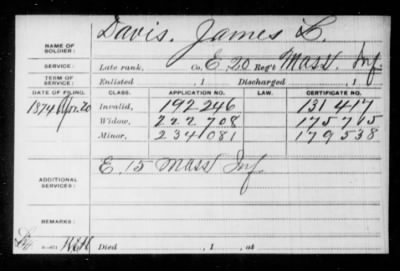 NAME OF SOLDIER: Davis, James L.
SERVICE: Late rank, Co. E 20 Reg't Mass Inf.
TERM OF SERVICE: Enlisted , 1 Discharged , 1
DATE OF FILING. CLASS. APPLICATION NO. LAW. CERTIFICATE NO.
1874 Apr. 20 Invalid, 192 246 131 417
Widow, 222 708 175 715
Minor, 234 081 179 538
ADDITIONAL SERVICES: E. 15 Mass Inf.
REMARKS:
Died , 1 , at